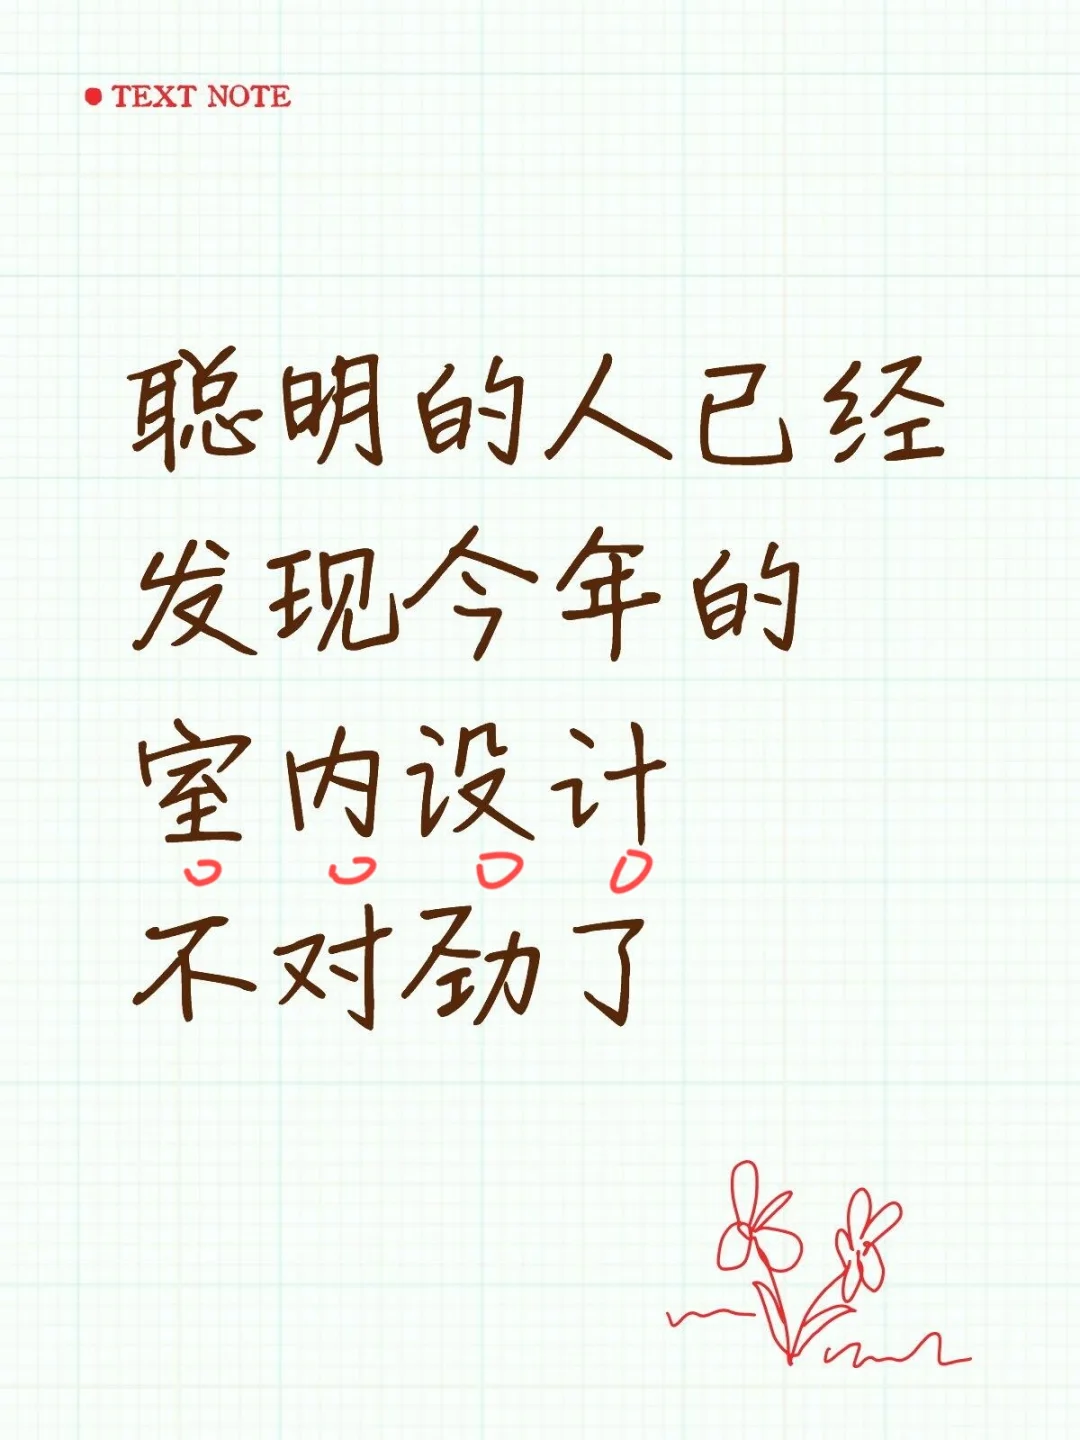 TEXT NOTE
聪明的人已经
发现今年的
室内设计
不对劲了